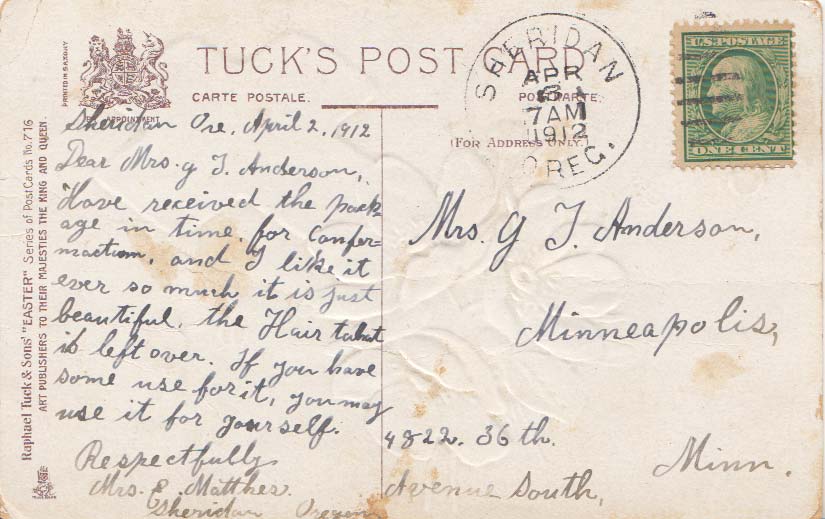 TUCK'S POST CARD
CARTE POSTALE.
POSTKARTE.
(FOR ADDRESS ONLY.)
PRINTED IN SAXONY
BY APPOINTMENT
Raphael Tuck & Sons' "EASTER" Series of Post Cards No. 716
ART PUBLISHERS TO THEIR MAJESTIES THE KING AND QUEEN.
SHERIDAN
APR
7 AM
1912
OREG.
U.S. POSTAGE
ONE CENT
Sheridan Ore, April 2, 1912
Dear Mrs. G J. Anderson,
Have received the pack-
age in time, for Confer-
mactium, and I like it
ever so much it is just
beautiful, the Hair
is left over. If you have
some use for it, you may
use it for yourself.
Respectfully
Mrs. E. Matthes.
Sheridan Oregon
Mrs. G J. Anderson,
Minneapolis,
4822. 36 th.
Avenue South,
Minn.